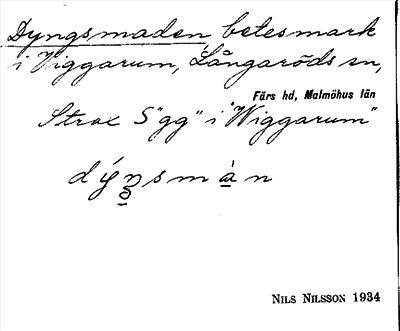 Dyngsmaden, betesmark
i Viggarum, Långaröds sn,
Färs hd, Malmöhus län
Strax S "gg" i "Wiggarum"
dýŋsmàn
NILS NILSSON 1934